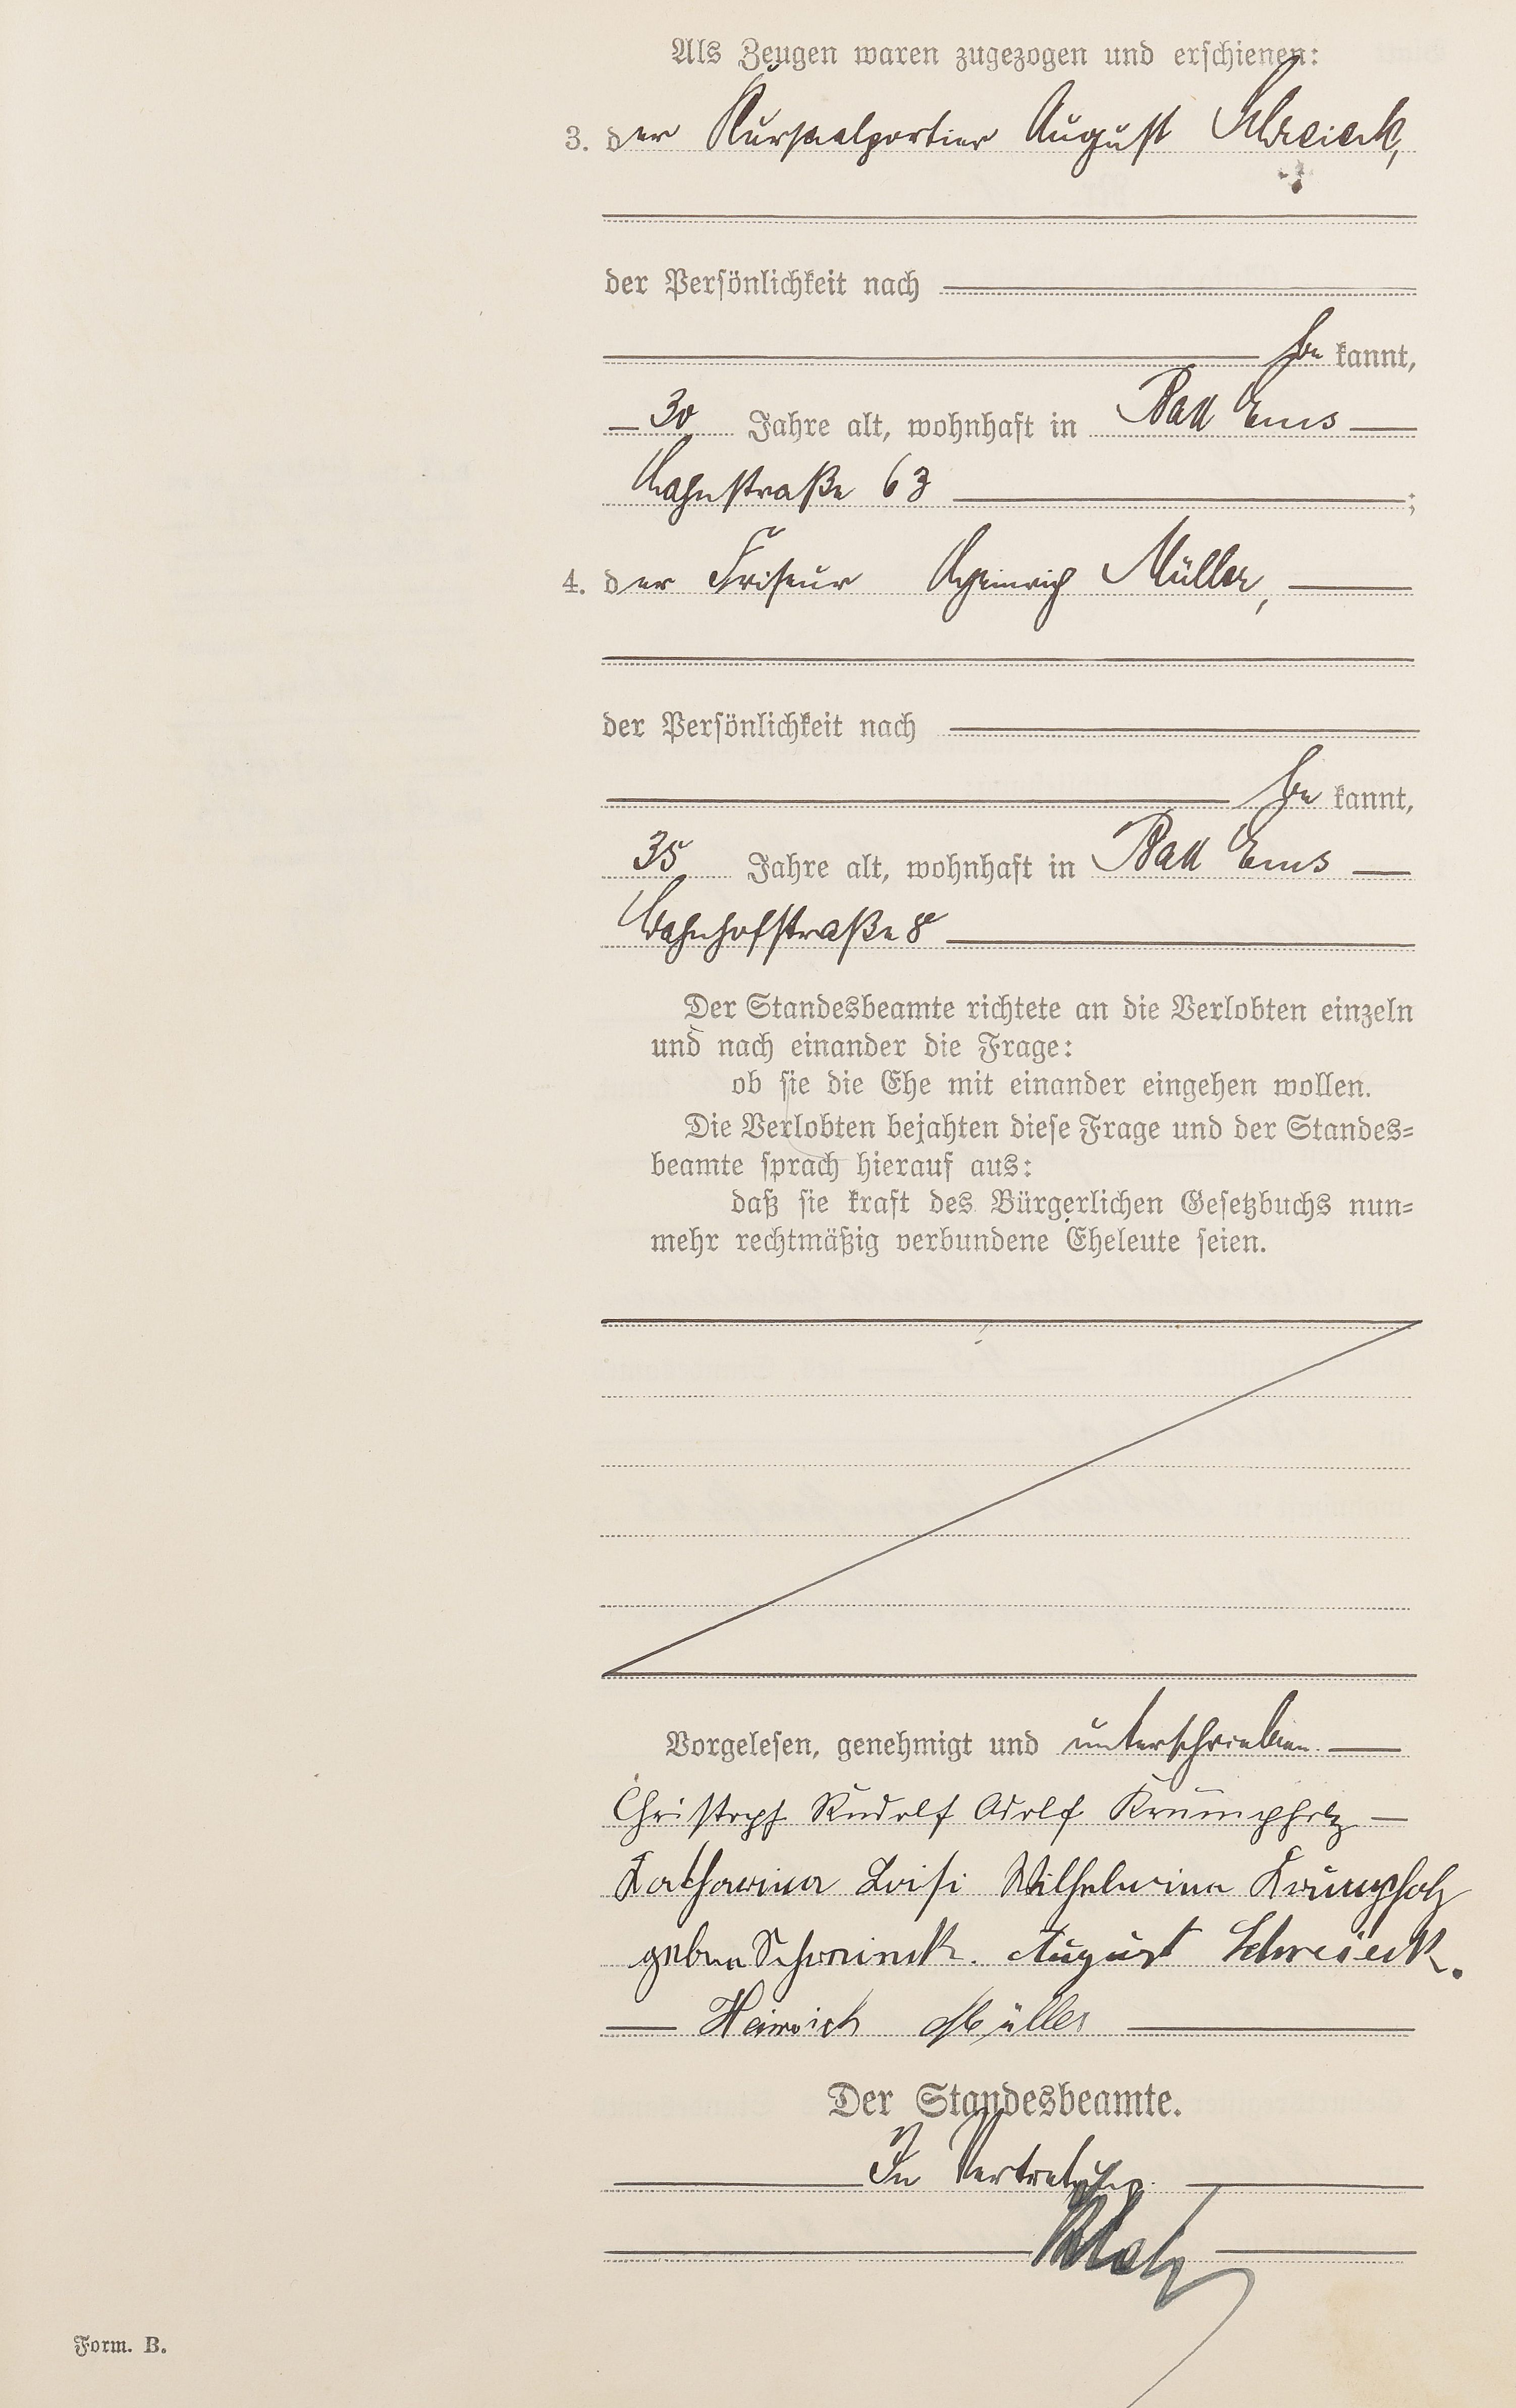 Als Zeugen waren zugezogen und erschienen:
3. der Kursaalportier August
der Persönlichkeit nach
be kannt,
30 Jahre alt, wohnhaft in Bad Ems
Lahnstraße 63 ;
4. der Friseur Heinrich Müller,
der Persönlichkeit nach
be kannt,
35 Jahre alt, wohnhaft in Bad Ems
Bahnhofstraße 8
Der Standesbeamte richtete an die Verlobten einzeln
und nach einander die Frage:
ob sie die Ehe mit einander eingehen wollen.
Die Verlobten bejahten diese Frage und der Standes=
beamte sprach hierauf aus:
daß sie kraft des Bürgerlichen Gesetzbuchs nun=
mehr rechtmäßig verbundene Eheleute seien.
Vorgelesen, genehmigt und unterschrieben.
Christoph Rudolf Adolf Krumpholz
Katharina Loisi Wilhelmina Krumpholz
August
Heinrich Müller
Der Standesbeamte.
In Vertretung.
Form. B.